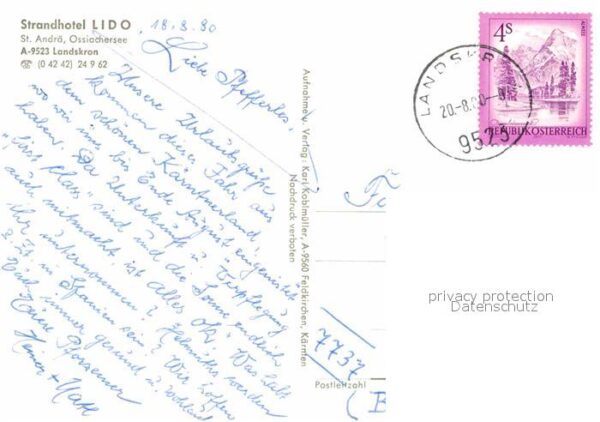 Strandhotel LIDO
St. Andrä, Ossiachersee
A-9523 Landskron
☎ (0 42 42) 24 9 62
18.8.80
Liebe Pfifferles,
Unsere Urlaubsgrüße
kommen dieses Jahr aus
dem schönen Kärntnerland,
wo wir uns bis Ende August eingenistet
haben. Da Unterkunft u. Verpflegung
"first Klass" sind und die Sonne endlich
auch mitmacht ist alles ok! Was habt
ihr unternommen?
z. Zt. in Spanien sein. Wir hoffen
immer gesund u.
Eure Pforzheimer
Heiner +
Aufnahme u. Verlag: Karl Koblmüller, A-9560 Feldkirchen, Kärnten
Nachdruck verboten
7737
Postleitzahl
4S
ALMSEE
REPUBLIK ÖSTERREICH
LANDSKR
20.-8.80-9
9523
privacy protection
Datenschutz